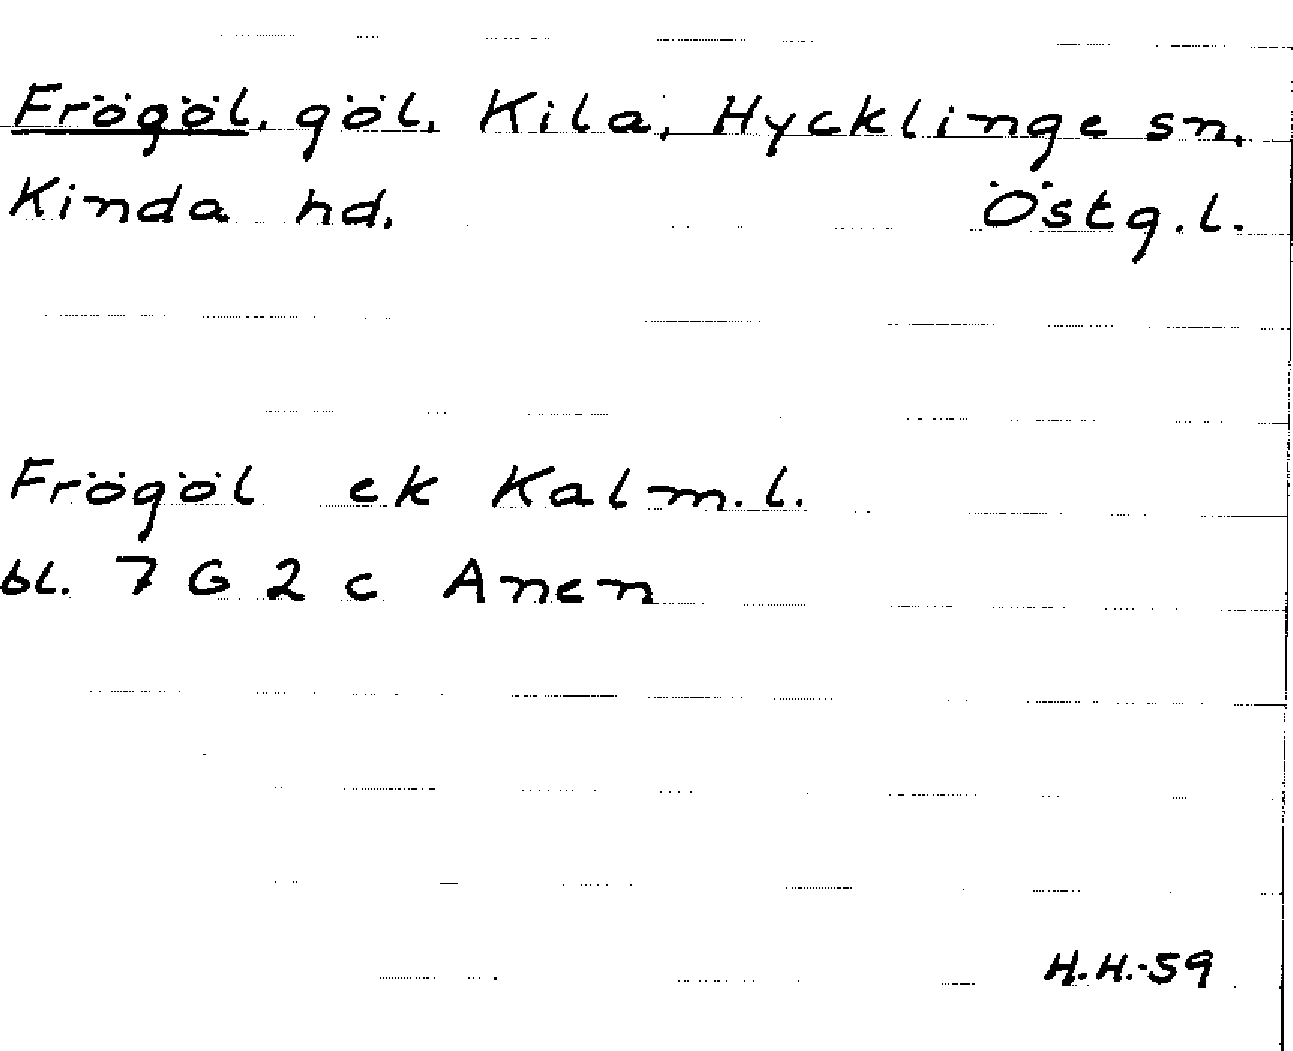 Frögöl, göl, Kila, Hycklinge sn,
Kinda hd. Östg.l.
Frögöl ek Kalm.l.
bl. 7 G 2 c Anen
H.H.-59